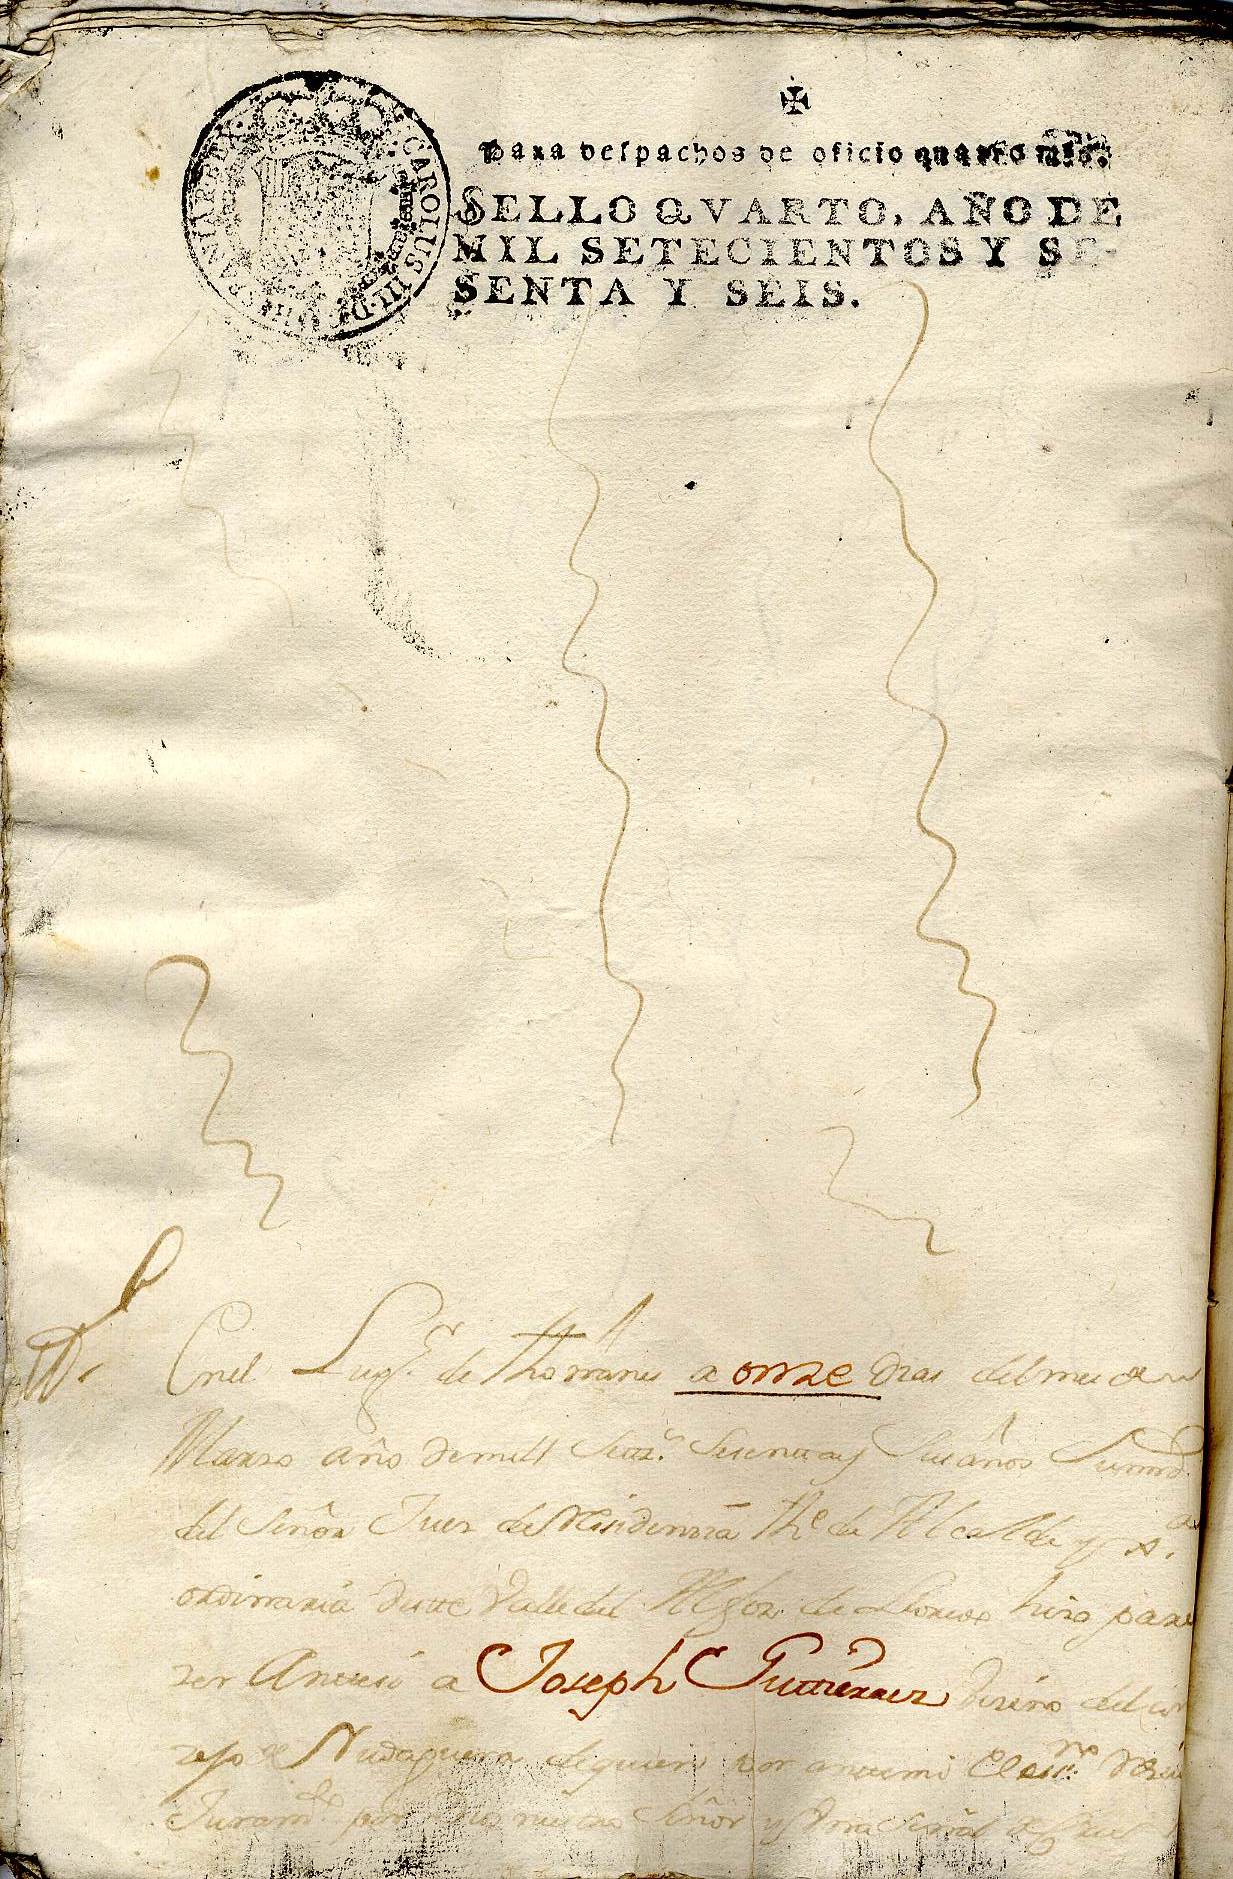 CAROLUS III D G HISPANIAR REX
Para despachos de oficio quatro mrs.
SELLO QVARTO, AÑO DE
MIL SETECIENTOS Y SE-
SENTA Y SEIS.
tt.º
Enel Lugr. de Thorranes a onze dias del mes de
Marzo año demill Settz.s Sesenta y Seis años Sumrd.
del Señor Juez de Residenzia The de Alcallde y
ordinaria deste Valle del Alfoz de Lloredo hizo pare
zer Antesi a Joseph Gutierrez Vezino del con
zejo de Rudaguera dequien por antemi el essno. Rezui
Juramto por Dios nuestro Señor y Una Señal de Cruz